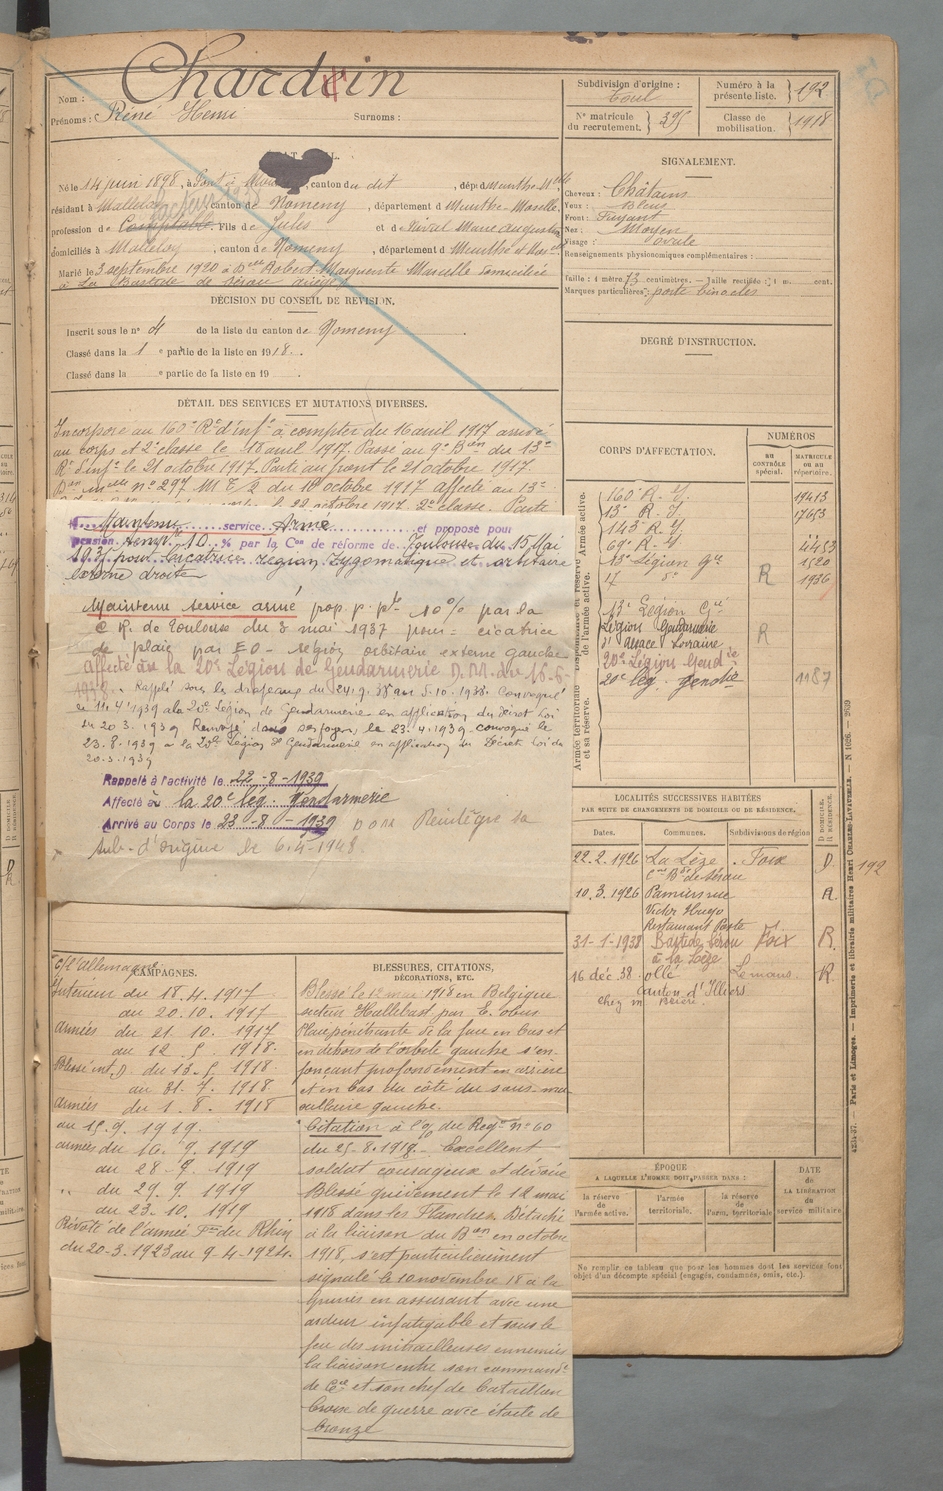 Nom : Chardin
Prénoms : Réné Henri Surnoms :
Subdivision d'origine : Toul
Numéro à la présente liste. } 192
Nº matricule du recrutement. } 395
Classe de mobilisation. } 1918
Né le 14 juin 1898, à Pont à , canton du dit , dépt Meurthe Mlle
résidant à Malleloy , canton de Nomeny , département d Meurthe-Moselle
profession de Comptable. Fils de Jules et de Nival Marie Augustine
domiciliés à Malleloy , canton de Nomeny , département d Meurthe et Moselle
Marié le 3 septembre 1920 à Delle Robert Marguerite Marcelle domiciliée
à La Bastide de Sérou
DÉCISION DU CONSEIL DE REVISION.
Inscrit sous le nº 4 de la liste du canton de Nomeny .
Classé dans la 1 e partie de la liste en 1918 .
Classé dans la e partie de la liste en 19
SIGNALEMENT.
Cheveux : Châtains
Yeux : Bleus
Front : Fuyant
Nez : Moyen
Visage : Ovale
Renseignements physionomiques complémentaires :
Taille : 1 mètre 73 centimètres. — Taille rectifiée : 1 m. cent.
Marques particulières : porte binocles
DEGRÉ D'INSTRUCTION.
DÉTAIL DES SERVICES ET MUTATIONS DIVERSES.
Incorporé au 160e Rt d'Infie à compter du 16 avril 1917 arrivé
au corps et 2e classe le 18 avril 1917. Passé au 9e Bon du 13e
Rt d'Infie le 21 octobre 1917. Parti au front le 21 octobre 1917.
nº 297 M T/2 du 18 octobre 1917 affecté au 13e
octobre 1917. 2e classe.
Maintenu service Armé et proposé pour
pension temp. 10 % par la Con de réforme de Toulouse du 15 Mai
pour cicatrice région zygomatique et orbitaire
externe droite
Maintenu service armé prop. p. pt. 10% par la
C R. de Toulouse du 3 mai 1937 pour : cicatrice
de plaie par EO - région orbitaire externe gauche
Affecté à la 20e Légion de Gendarmerie D.M. du 16-6-
1938. Rappelé sous les drapeaux du 24.9.38 au 5.10.1938. Convoqué
le 11.4.1939 à la 20e Légion de Gendarmerie en application du Décret Loi
du 20.3.1939 Renvoyé dans ses foyers le 23.4.1939 convoqué le
23.8.1939 à la 20e Légion de Gendarmerie en application du Décret Loi du
20.3.1939
Rappelé à l'activité le 22-8-1939
Affecté à la 20e lég. Gendarmerie
Arrivé au Corps le 23-8-1939 Réintégré sa
sub. d'origine le 6.4.1948.
CORPS D'AFFECTATION.
NUMÉROS
AU CONTRÔLE spécial.
MATRICULE OU AU répertoire.
160e R. I. 19413
13e R. I. 17653
143e R. I.
69e R. I. 4453
13e Légion Gie R 1520
17 do 1936
13e Légion Gie
Légion Gendarmerie R
d'Alsace Lorraine
20e Légion Gendie
20e lég. gendie 1187
Armée territoriale et sa réserve.
LOCALITÉS SUCCESSIVES HABITÉES
PAR SUITE DE CHANGEMENTS DE DOMICILE OU DE RÉSIDENCE.
Dates. Communes. Subdivisions de région D DOMICILE. R RÉSIDENCE.
22.2.1926 La Lèze . Foix D
Cne Bde de Sérou
10.3.1926 Pamiers rue R.
Victor Hugo
Restaurant Poste
31-1-1938 Bastide Sérou Foix R.
à la Lèze
16 déc. 38. ollé Lemans. R
Canton d'Illiers
chez M
192
C/ l'Allemagne
CAMPAGNES.
Intérieur du 18.4.1917
au 20.10.1917
Armées du 21.10.1917
au 12.5.1918.
Blessé int. D. du 13.5.1918.
au 31.7.1918
Armées du 1.8.1918
au 15.9.1919.
armées du 16.9.1919
au 28-9.1919
" du 29.9.1919
au 23.10.1919
Révolté de l'armée Fse du Rhin
du 20-3.1923 au 9-4-1924.
BLESSURES, CITATIONS,
DÉCORATIONS, ETC.
Blessé le 12 mai 1918 en Belgique
secteur Hallebast par E. obus
Plaie pénétrante de la face en bas et
en dehors de l'orbite gauche s'en-
fonçant profondément en arrière
et en bas du côté du sous-ma-
xillaire gauche.
Citation à l'o/ du Regt nº 60
du 25-8-1918 - Excellent
soldat courageux et dévoué
Blessé grièvement le 12 mai
1918 dans les Flandres. Détaché
à la liaison du Bon en octobre
1918, s'est particulièrement
signalé le 10 novembre 18 à la
en assurant avec une
ardeur infatigable et sous le
feu des mitrailleuses ennemies
la liaison entre son command't
de Cie et son chef de bataillon
Croix de guerre avec étoile de
bronze
ÉPOQUE
A LAQUELLE L'HOMME DOIT PASSER DANS :
la réserve de l'armée active. l'armée territoriale. la réserve de l'arm. territoriale
DATE DE LA LIBÉRATION du service militaire
Ne remplir ce tableau que pour les hommes dont les services font
objet d'un décompte spécial (engagés, condamnés, omis, etc.).
Paris et Limoges. — Imprimerie et librairie militaires Henri CHARLES-LAVAUZELLE.